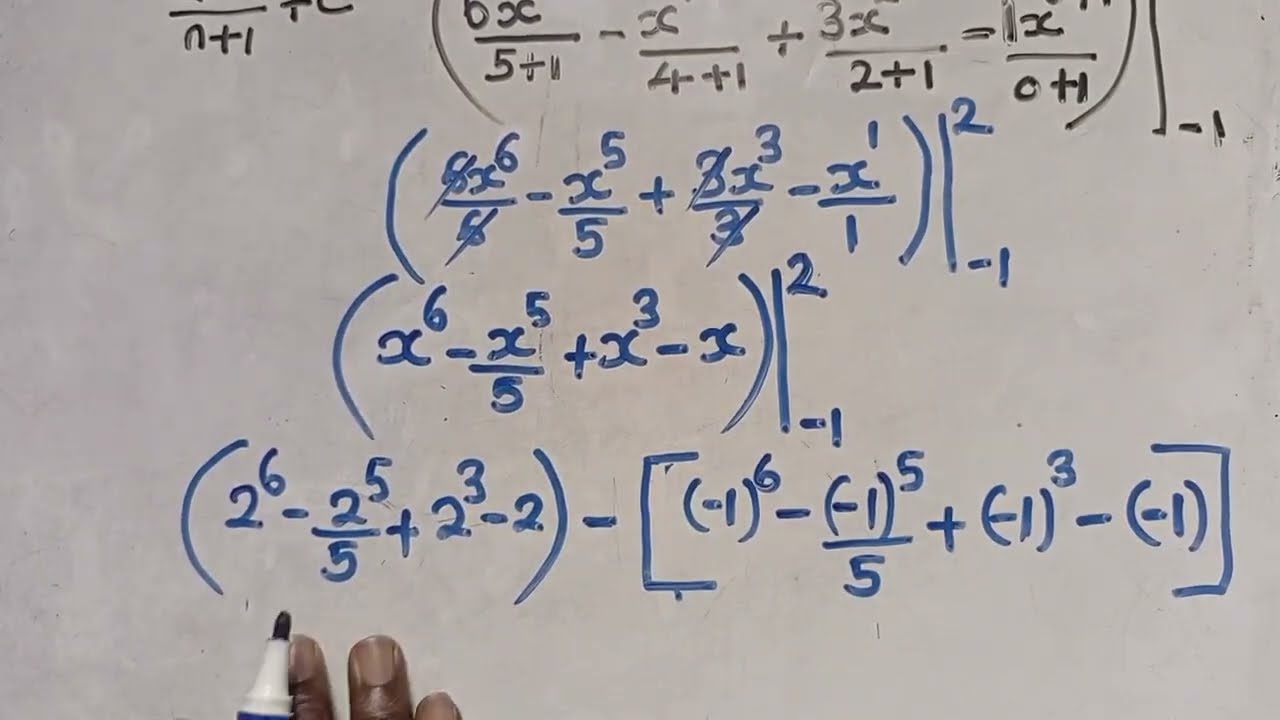 n+1 +c (6x/5+1 - x/4+1 + 3x/2+1 - 1x/0+1)|-1
(6x⁶/6 - x⁵/5 + 3x³/3 - x¹/1)|²-1
(x⁶ - x⁵/5 + x³ - x)|²-1
(2⁶ - 2⁵/5 + 2³ - 2) - [(-1)⁶ - (-1)⁵/5 + (-1)³ - (-1)]